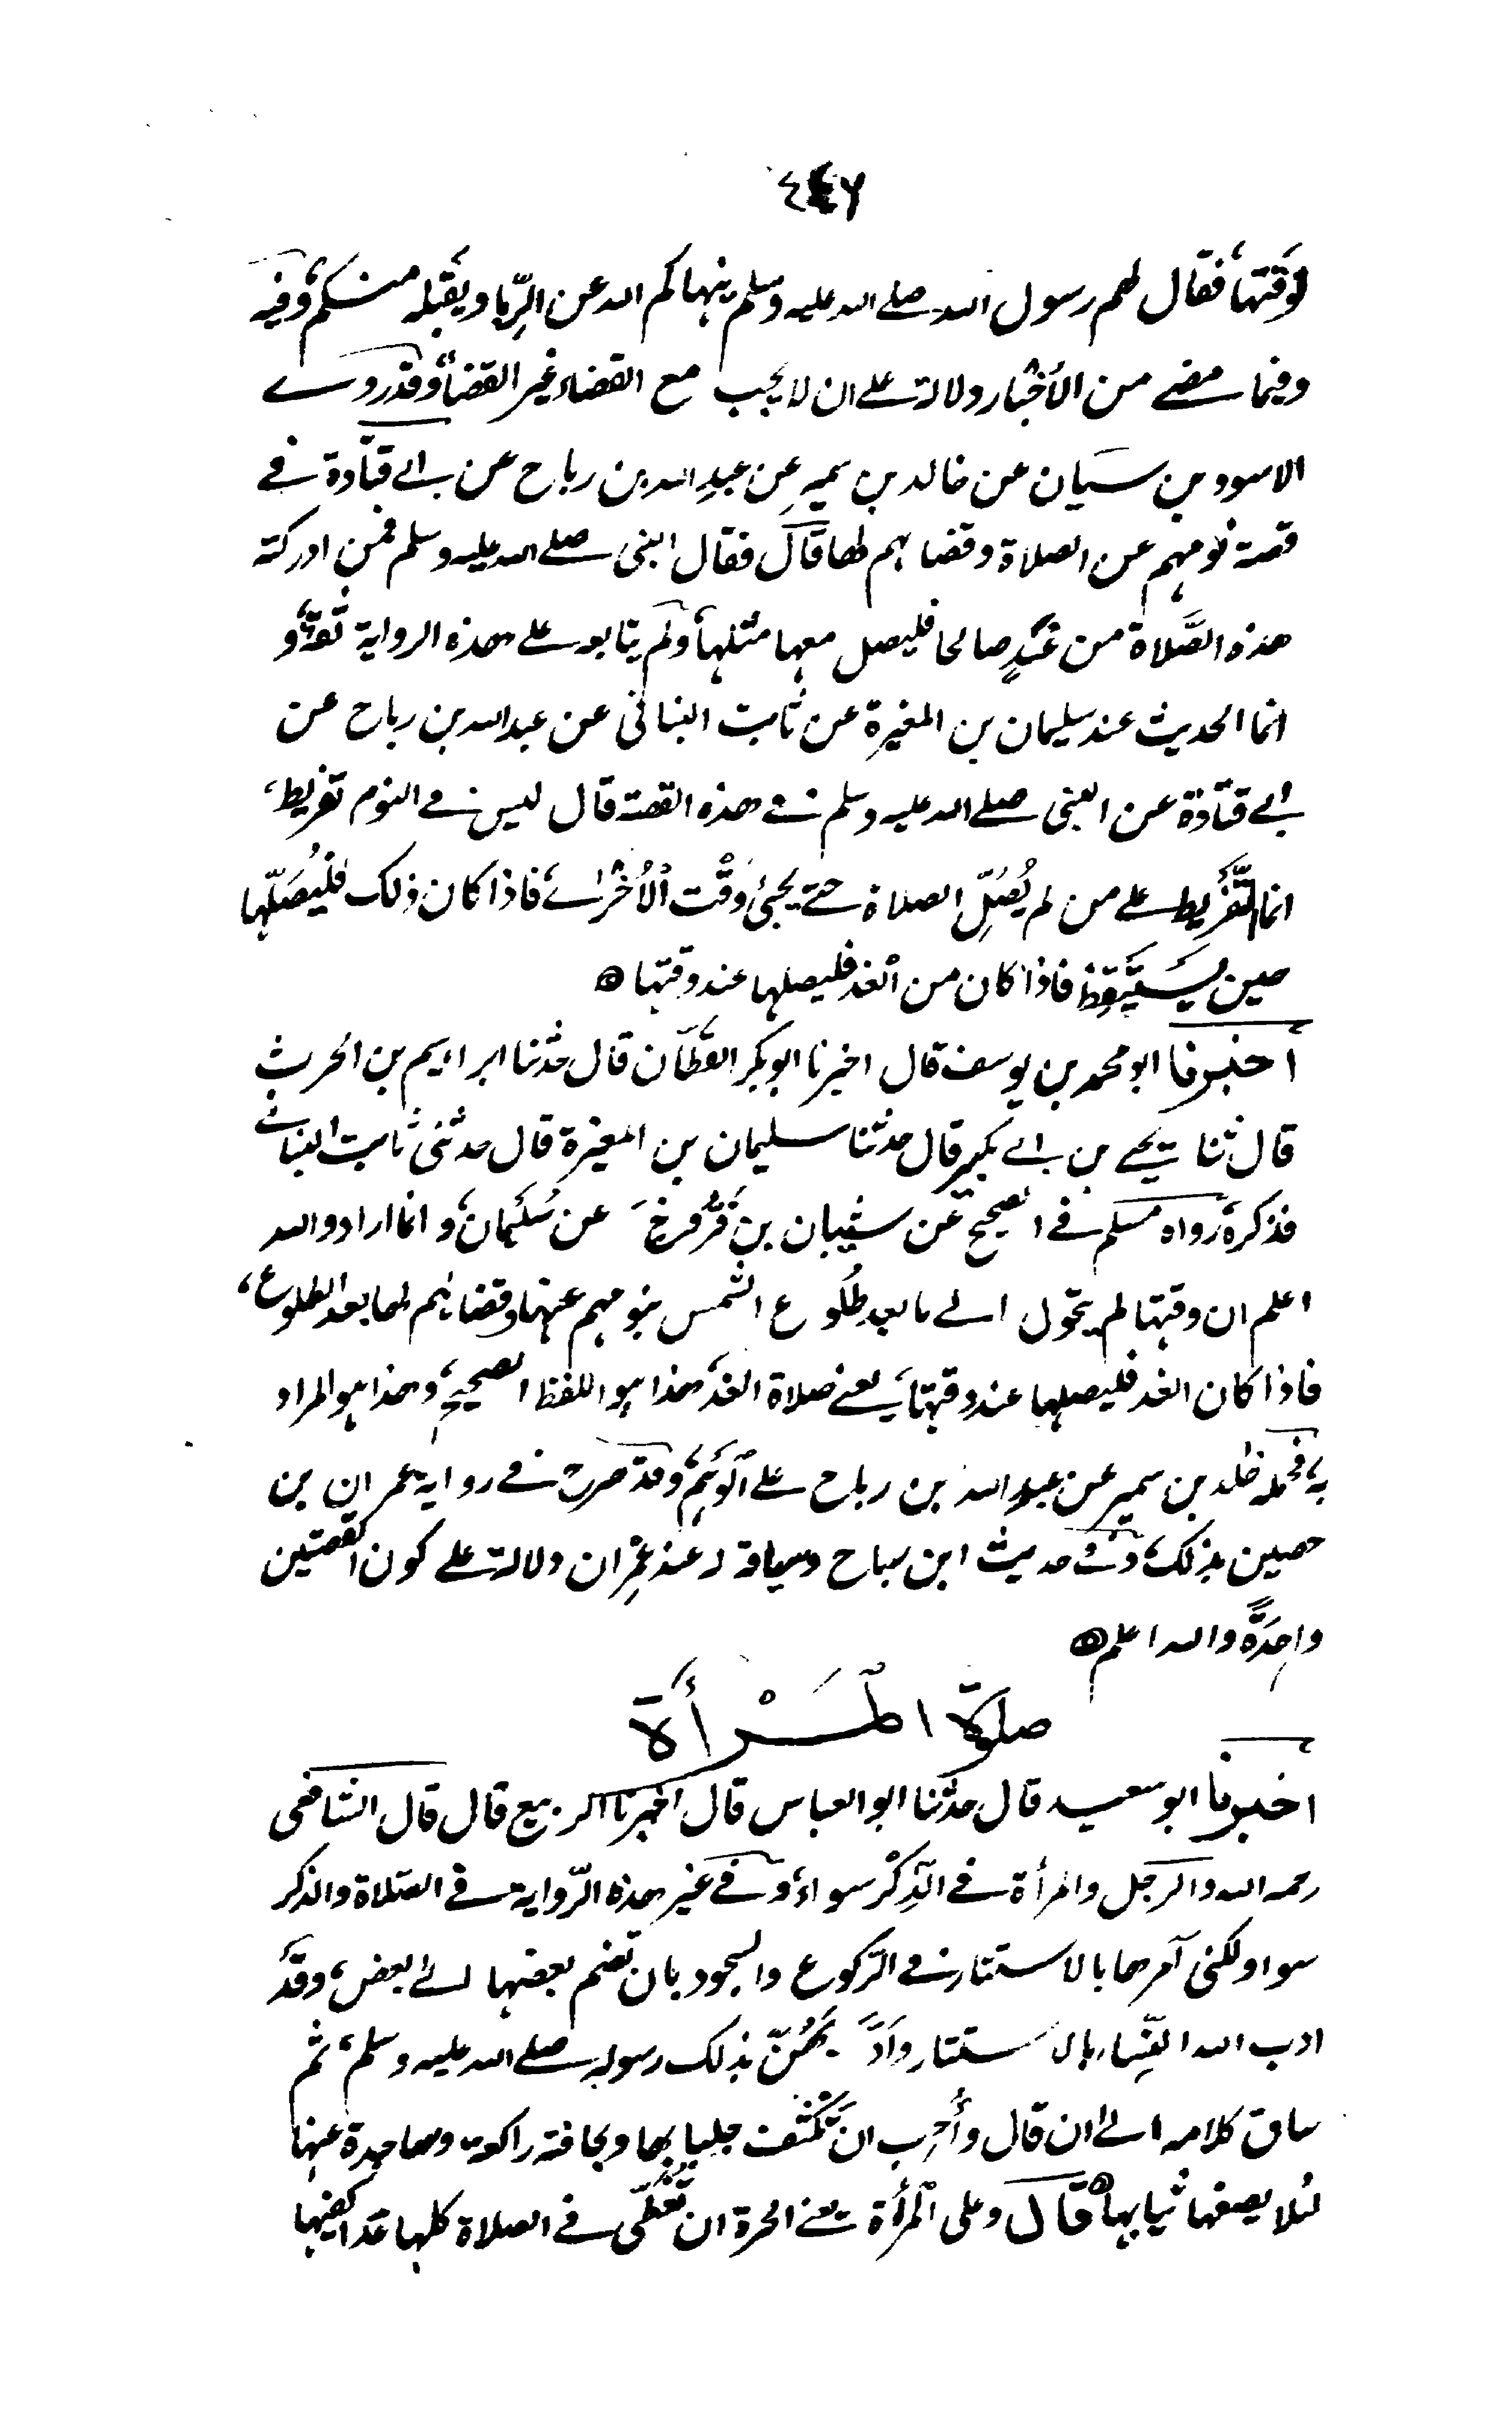 لوقتها، فقال لهم رسول الله صلى الله عليه وسلم ينهاكم الله عن الرِّبا ويقبله منكم، وفيه
وفيما مضى من الأخبار دلالة على ان لا يجب مع القضاء غير القضاء، وقد روى
الاسود بن شيبان عن خالد بن سمير عن عبد الله بن رباح عن ابي قتادة في
قصة نومهم عن الصلاة وقضاءهم لها قال فقال النبي صلى الله عليه وسلم فمن ادركته
هذه الصَّلاة من غدٍ صالحا فليصل معها مثلها، ولم يتابع على هذه الرواية ثقة، و
انما الحديث عند سليمان بن المغيرة عن ثابت البناني عن عبد الله بن رباح عن
ابي قتادة عن النبي صلى الله عليه وسلم في هذه القصة قال ليس في النوم تفريط،
انما التَّفْريط على من لم يُصَلِّ الصلاة حتى يجئ وَقْت الأُخْرى، فاذا كان ذلك فليُصَلّها
حين يَسْتَيقظ فاذا كان من الغد فليصلها عند وقتها ۞
اخبرنا ابو محمد بن يوسف قال اخبرنا ابو بكر القطّان قال حدثنا ابراهيم بن الحرث
قال ثنا يحيى بن ابي بكير قال حدثنا سليمان بن المغيرة قال حدثنى ثابت البناني
فذكره، رواه مسلم في الصحيح عن شيبان بن فَرُّوخَ عن سُلَيمان، وانما اراد والله
اعلم ان وقتها لم يتحول الى ما بعد طُلُوع الشمس بنومهم عنها وقضائهم لها بعد الطلوع،
فاذا كان الغد فليصلها عند وقتها، يعنى صلاة الغد، هذا هو اللفظ الصحيح، وهذا هو المراد
به، فحمله خالد بن سمير عن عبد الله بن رباح على الوَهْم، وقد صرح في رواية عمران بن
حصين بذلك، وفي حديث ابن رباح وسياقه له عند عِمْران دلالة على كون القصتين
واحِدَةً والله اعلم ۞
صلوة المَرْأَة
اخبرنا ابو سعيد قال حدثنا ابو العباس قال اخبرنا الربيع قال قال الشافعى
رحمه الله والرجل والمرأة في الذِّكْر سواء، وفي غير هذه الرّواية في الصّلاة والذكر
سوا ولكنى آمرها بالاستتار في الركوع والسجود بان تضم بعضها الى بعض، وقد
ادب الله النِّساء بالاستتار وادّبهُنّ بذلك رسوله صلى الله عليه وسلم، ثم
ساق كلامه الى ان قال وأُحِب ان تُكَثّف جلبابها وتجافيه راكعة وساجدة عنها
لئلا يصفها ثيابها ۞ قال وعلى المرأة يعنى الحرة ان تُغَطّى في الصلاة كلها عدا كفيها